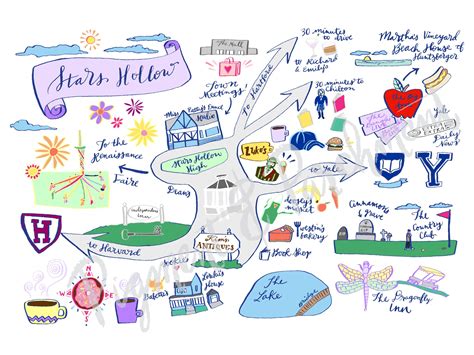 Stars Hollow
The Mall
30 minutes
to drive
to Richard
& Emily's
Martha's Vineyard
Beach House of
Huntzberger
To Hartford
Town
Meetings
Miss
Patty's
Dance
Studio
30 minutes to
Chilton
The Big
Yale
Daily
News
To the
Renaissance
Faire
Stars Hollow
High
Luke's
to Yale
Y
Dean's
Independence
Inn
Doosey's
market
Cinnamon's
Grave
The
Country
Club
H
to Harvard
Kim's
ANTIQUES
Weston's
bakery
Book Shop
N
W
E
S
Lorelai's
House
The
Lake
Bridge
The Dragonfly
Inn